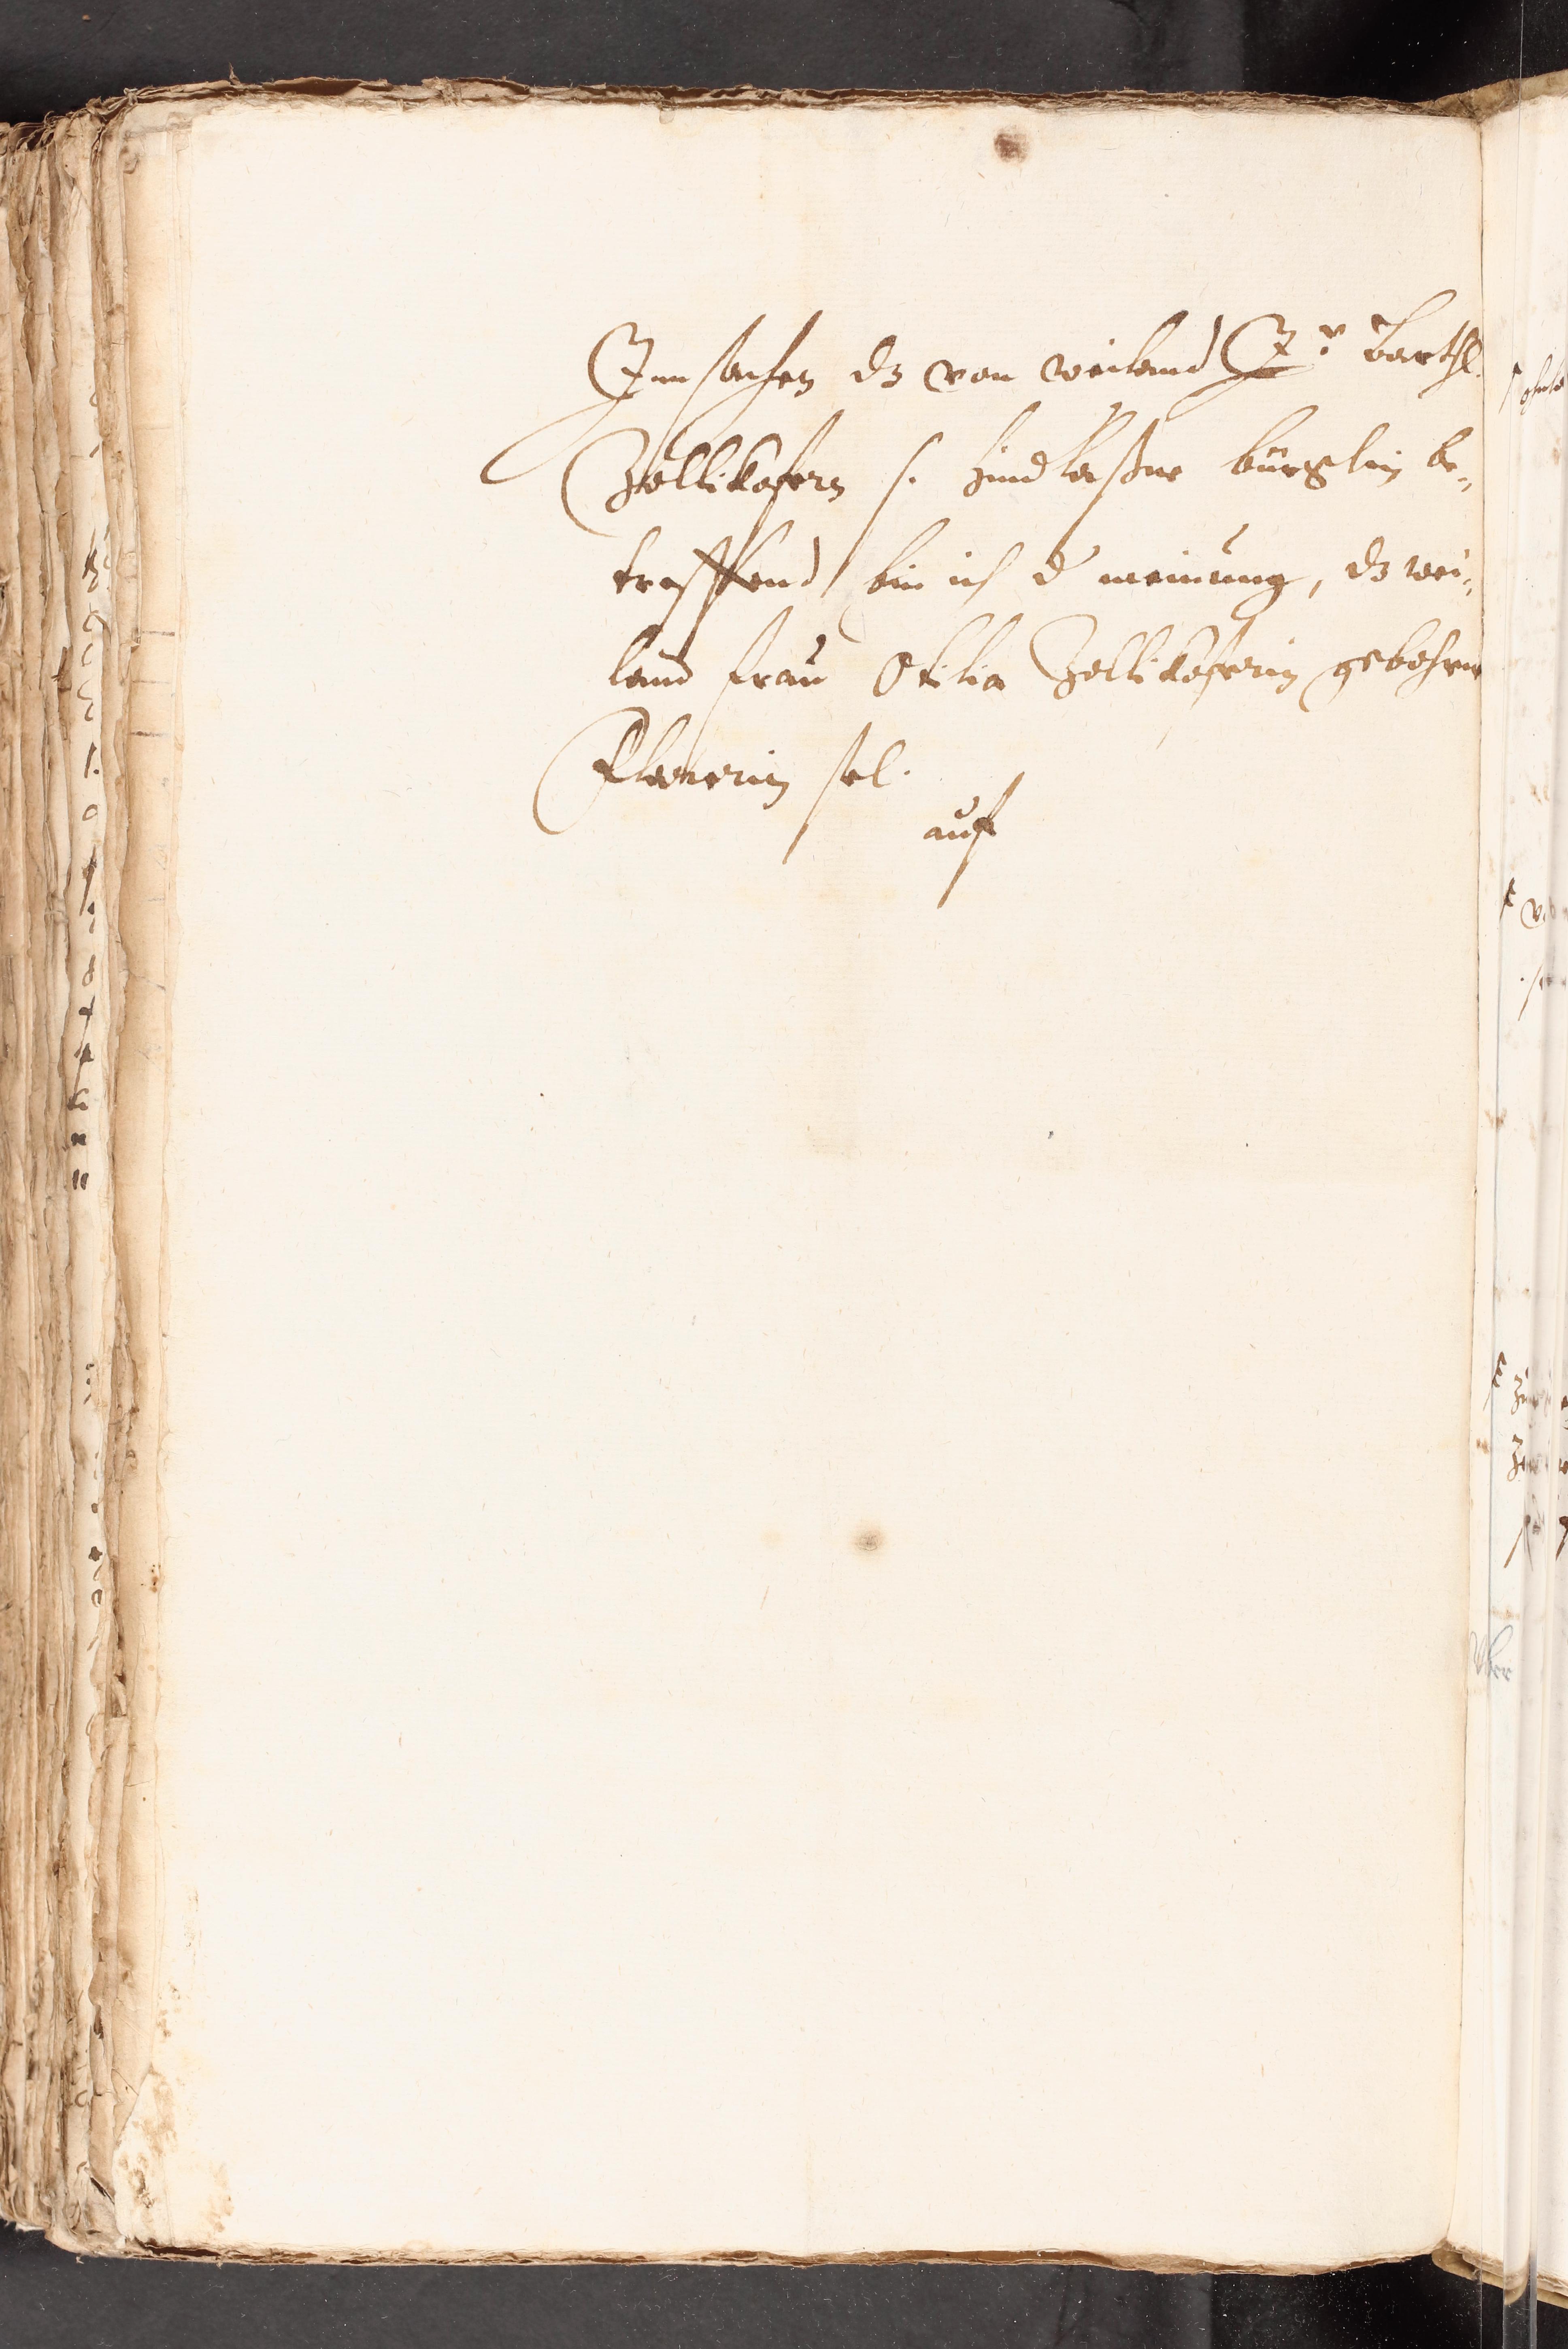 Inn sachen dz von weiland Jr. Barthl.
Zollikofern s. hindlaßne bürglin be-
treffend bin ich d' meinung, dz wei-
land frau Otilia Zollikoferin gebohrne
sel.
auf